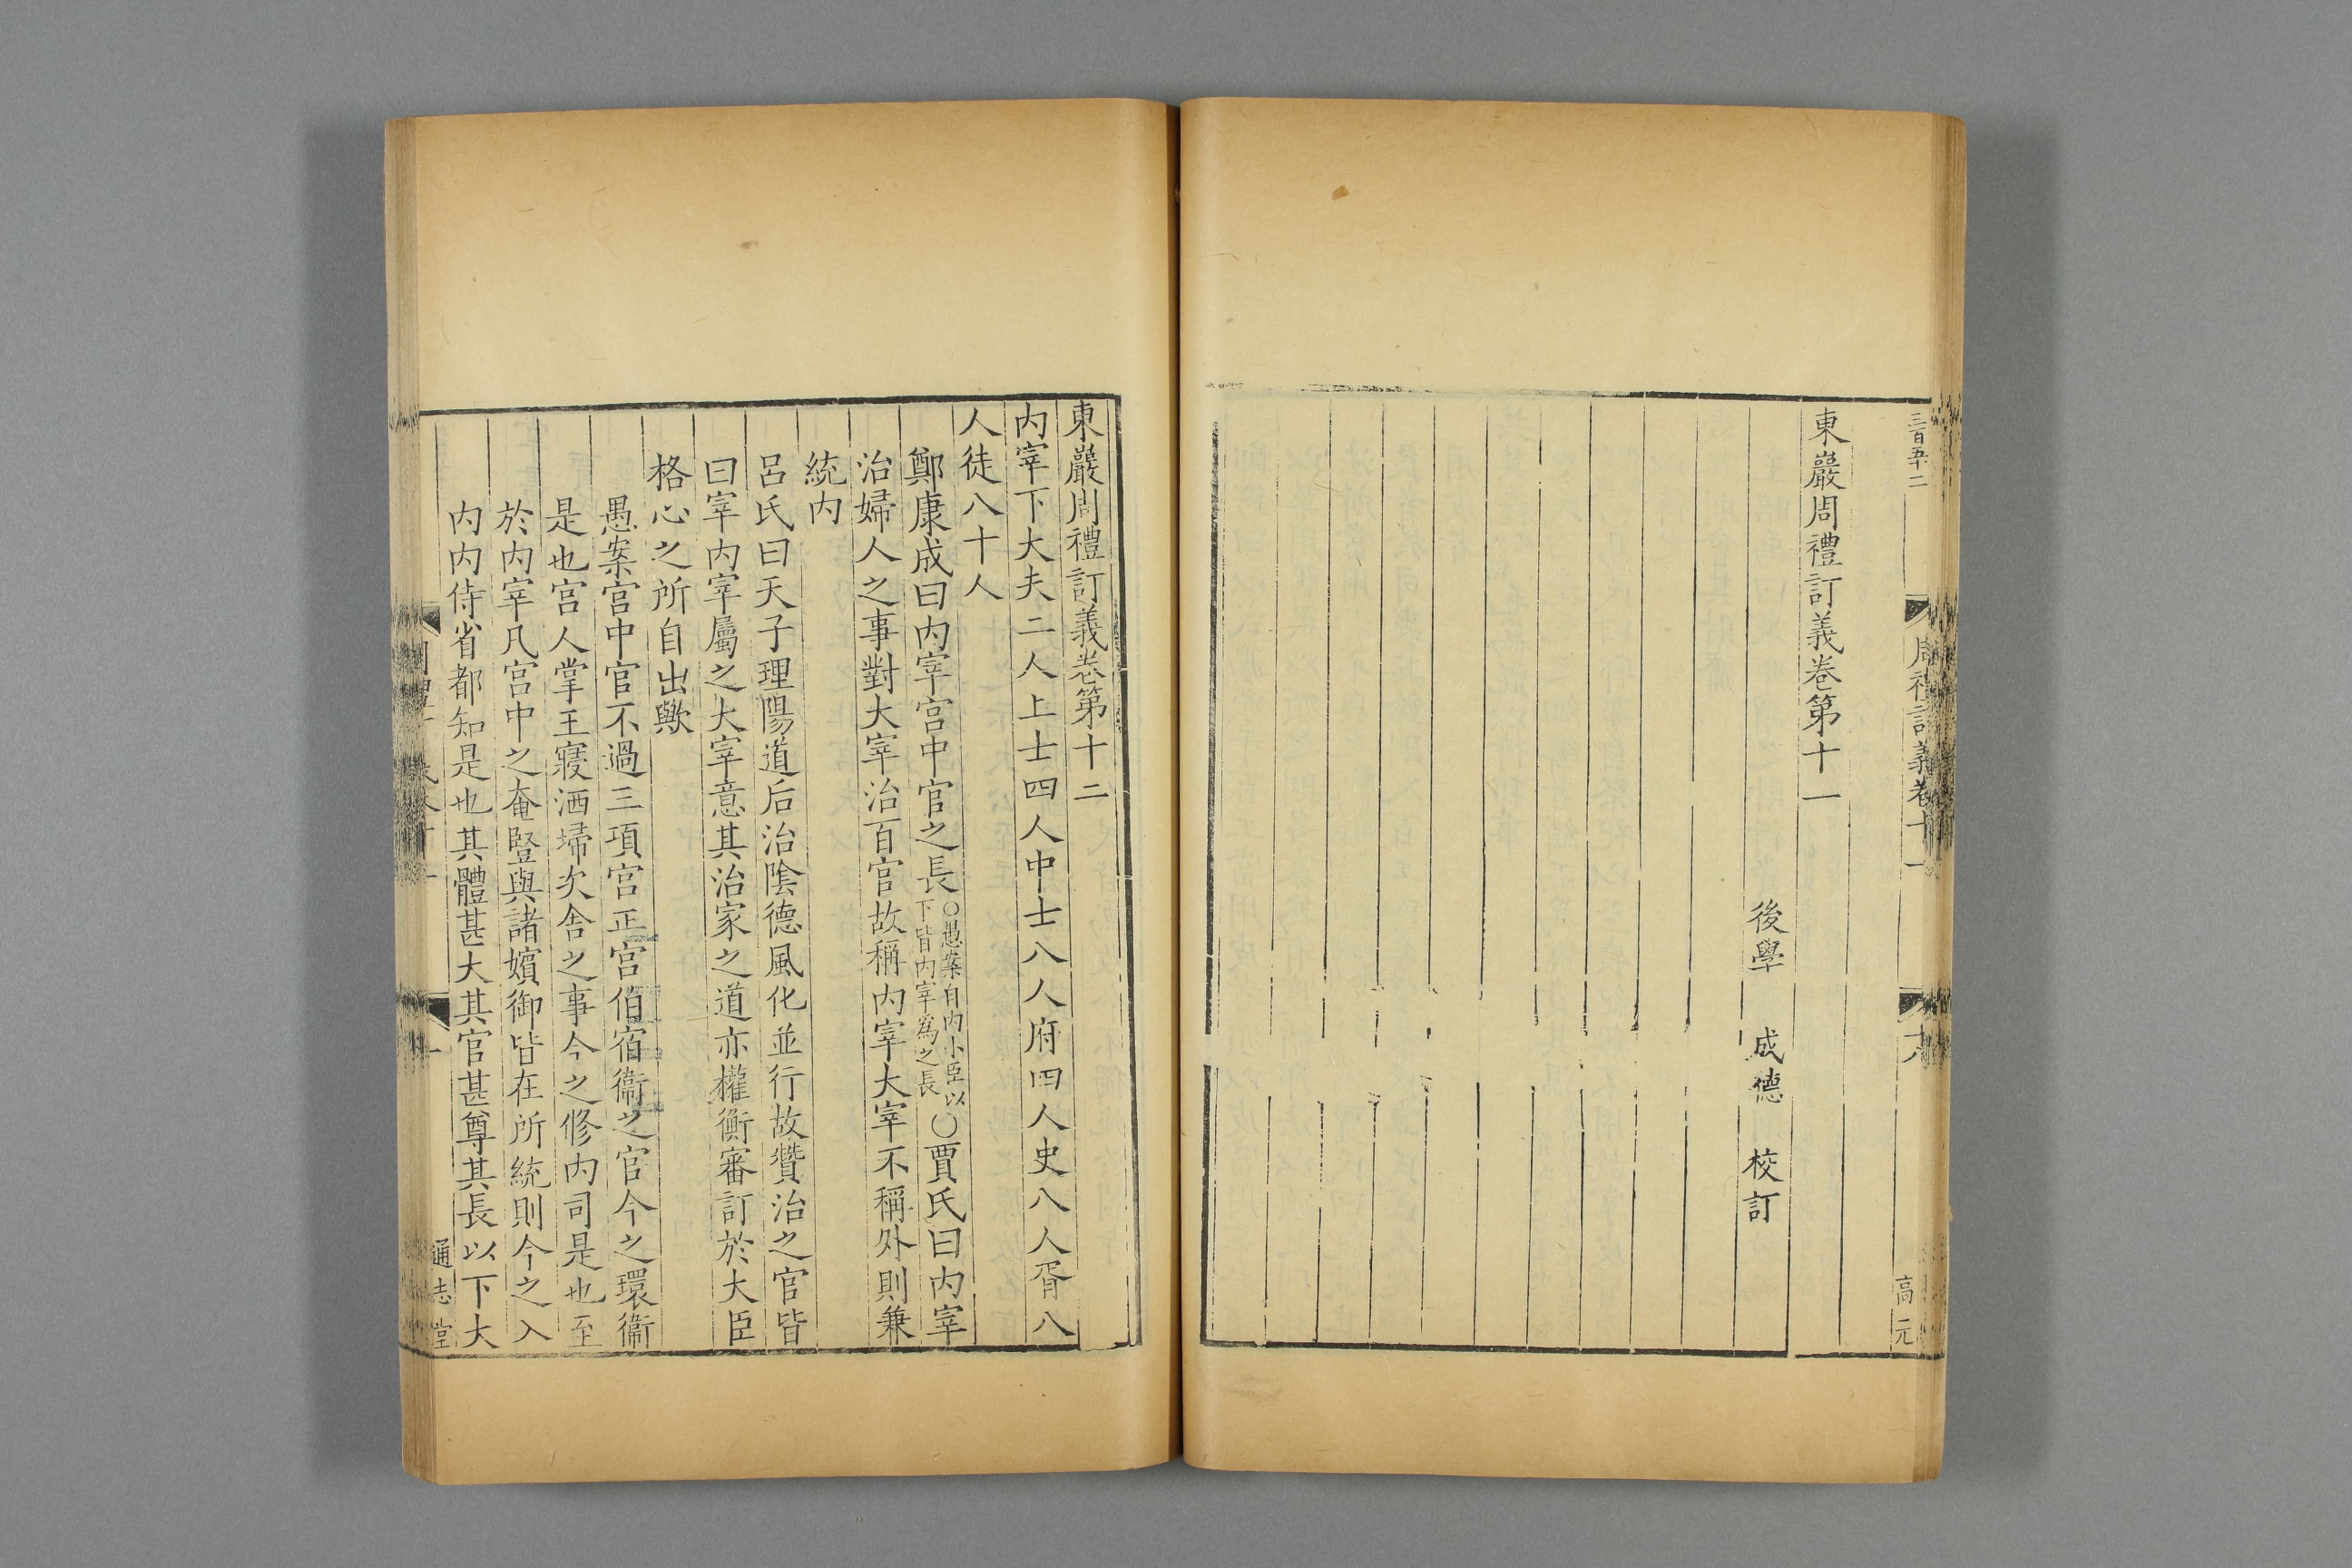 三百五十二
周禮訂義卷十一
十八
高元
東巖周禮訂義卷第十一
後學 成德 校訂
東巖周禮訂義卷第十二
内宰下大夫二人上士四人中士八人府四人史八人胥八
人徒八十人
鄭康成曰内宰宫中官之長○愚案自内小臣以下皆内宰為之長○賈氏曰内宰
治婦人之事對大宰治百官故稱内宰大宰不稱外則兼
統内
呂氏曰天子理陽道后治陰德風化並行故贊治之官皆
曰宰内宰屬之大宰意其治家之道亦權衡審訂於大臣
格心之所自出歟
愚案宫中官不過三項宫正宫伯宿衞之官今之環衞
是也宫人掌王寢洒埽次舎之事今之修内司是也至
於内宰凡宫中之奄豎與諸嬪御皆在所統則今之入
内内侍省都知是也其體甚大其官甚尊其長以下大
一
通志堂